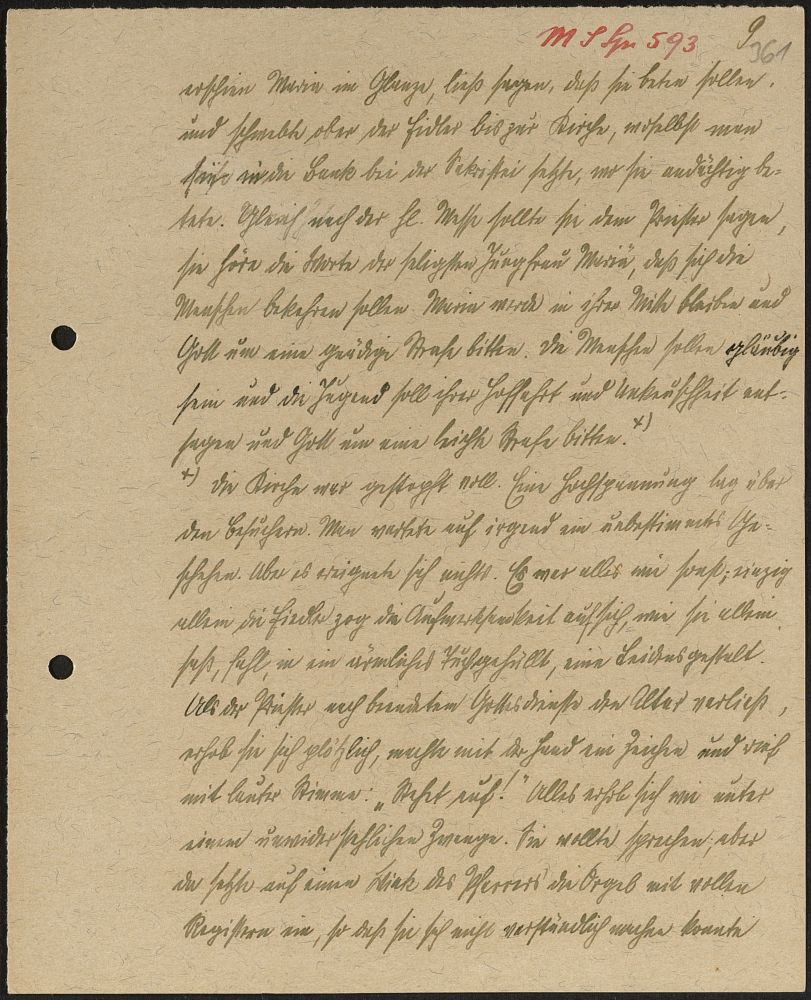 M S Gr 593
9
361
erschien Maria im Glanze, ließ sagen, daß sie beten sollen,
und schwebte ober der Fidler bis zur Kirche, woselbst man
sie in die Bank bei der Sakristei setzte, wo sie andächtig be-
tete. Gleich nach der hl. Messe sollte sie dem Priester sagen,
sie höre die Worte der seligsten Jungfrau Mariä, daß sich die
Menschen bekehren sollen. Maria werde in ihrer Mitte bleiben und
Gott um eine gnädige Strafe bitten. Die Menschen sollen gläubig
sein und die Jugend soll ihrer Hoffahrt und Unkeuschheit ent-
sagen und Gott um eine leichte Strafe bitten. +)
+) Die Kirche war gestopft voll. Eine Hochspannung lag über
den Besuchern. Man wartete auf irgend ein unbestimmtes Ge-
schehen. Aber es ereignete sich nichts. Es war alles wie sonst; einzig
allein die Fiedler zog die Aufmerksamkeit auf sich, wie sie allein
saß, fahl, in ein ärmliches Tuch gehüllt, eine Leidensgestalt.
Als der Priester nach beendetem Gottesdienste den Altar verließ,
erhob sie sich plötzlich, machte mit der Hand ein Zeichen und rief
mit lauter Stimme: „Stehet auf!" Alles erhob sich wie unter
einem unwiderstehlichen Zwange. Sie wollte sprechen; aber
da setzte auf einen Wink des Pfarrers die Orgel mit vollen
Registern ein, so daß sie sich nicht verständlich machen konnte